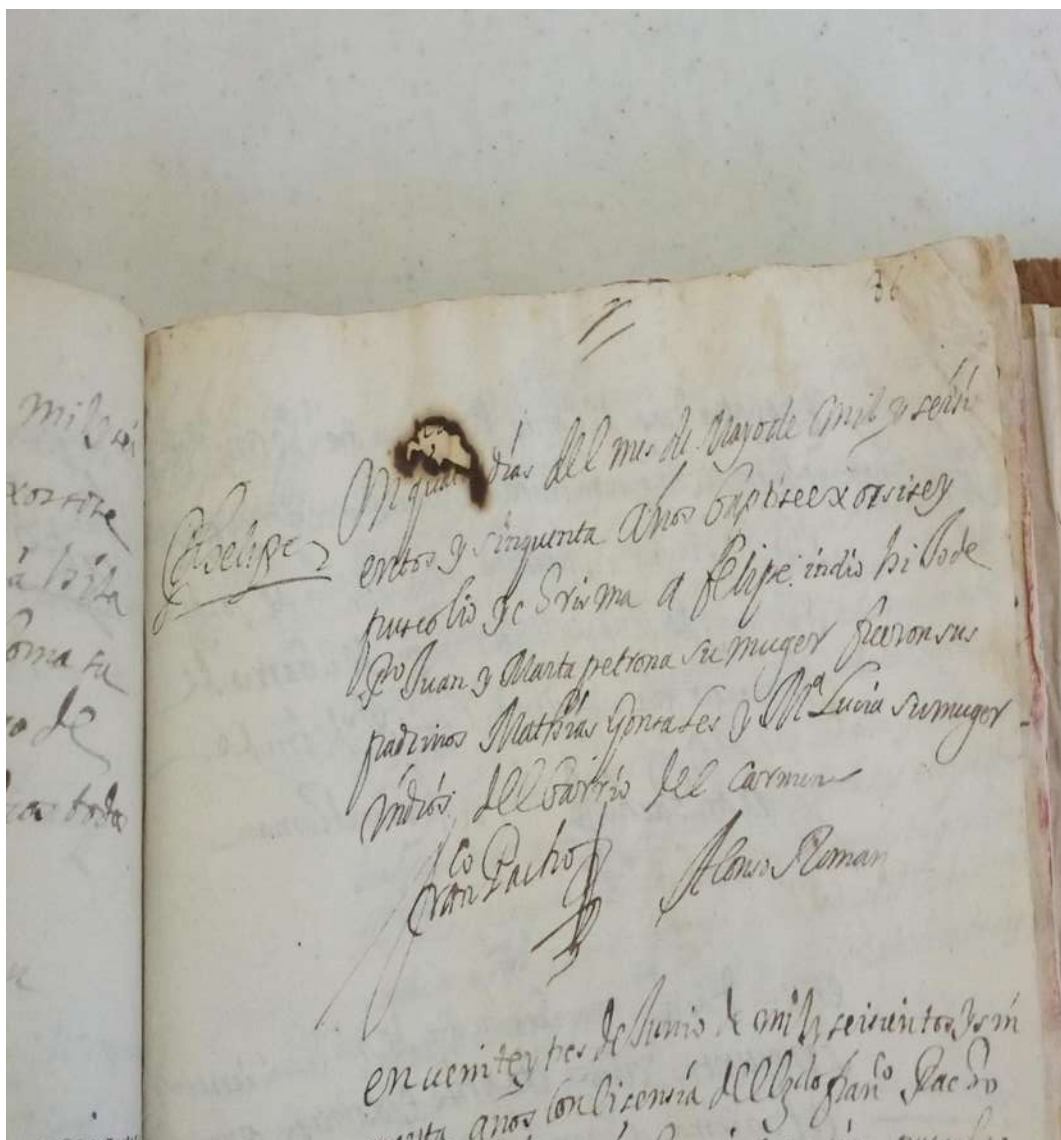 mil y sei
xorsise
a hija
Coma su
o de
cas todas
36
En quin dias del mes de Mayo de mil y seisi
entos y sinquenta años baptise exorsise y
puse olio y crisma a felipe indio hijo de
Po Juan y Marta petrona su muger fueron sus
padrinos Mathias Gonsales y Mª Lucia su muger
indios del barrio del carmen
felipe
franco Pacho
Alonso Roman
en veinte y tres de Junio de mil y seisientos y sin
años con licensia del Lzdo franco Pacho